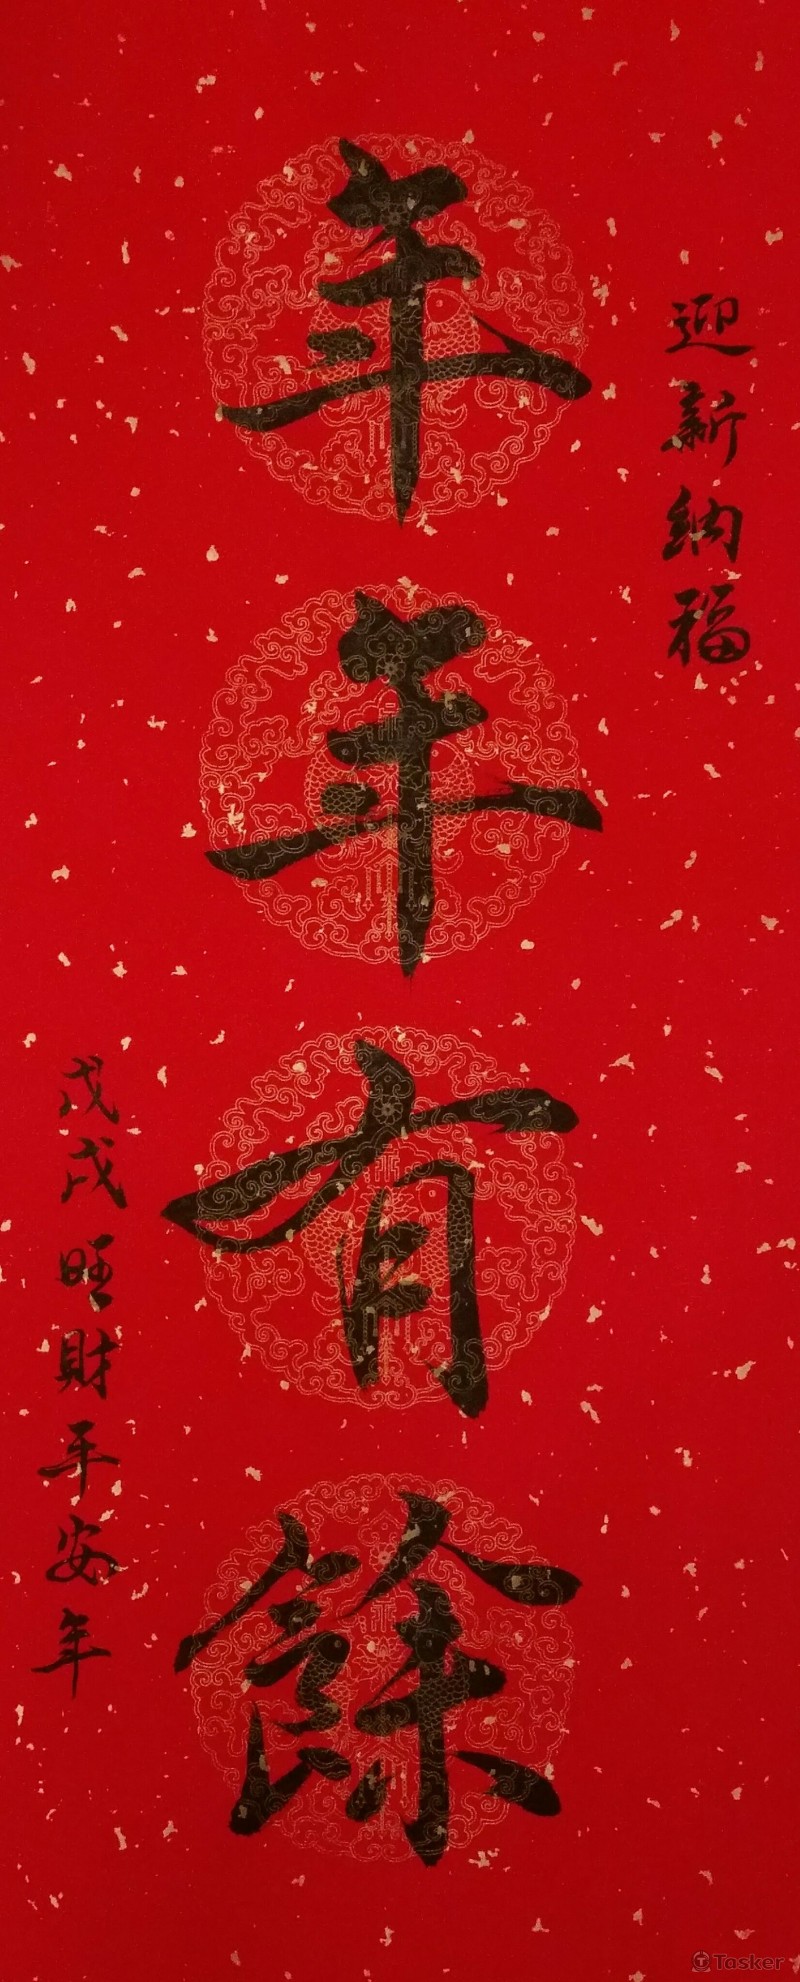 迎新納福
年年有餘
戊戌旺財平安年
Tasker